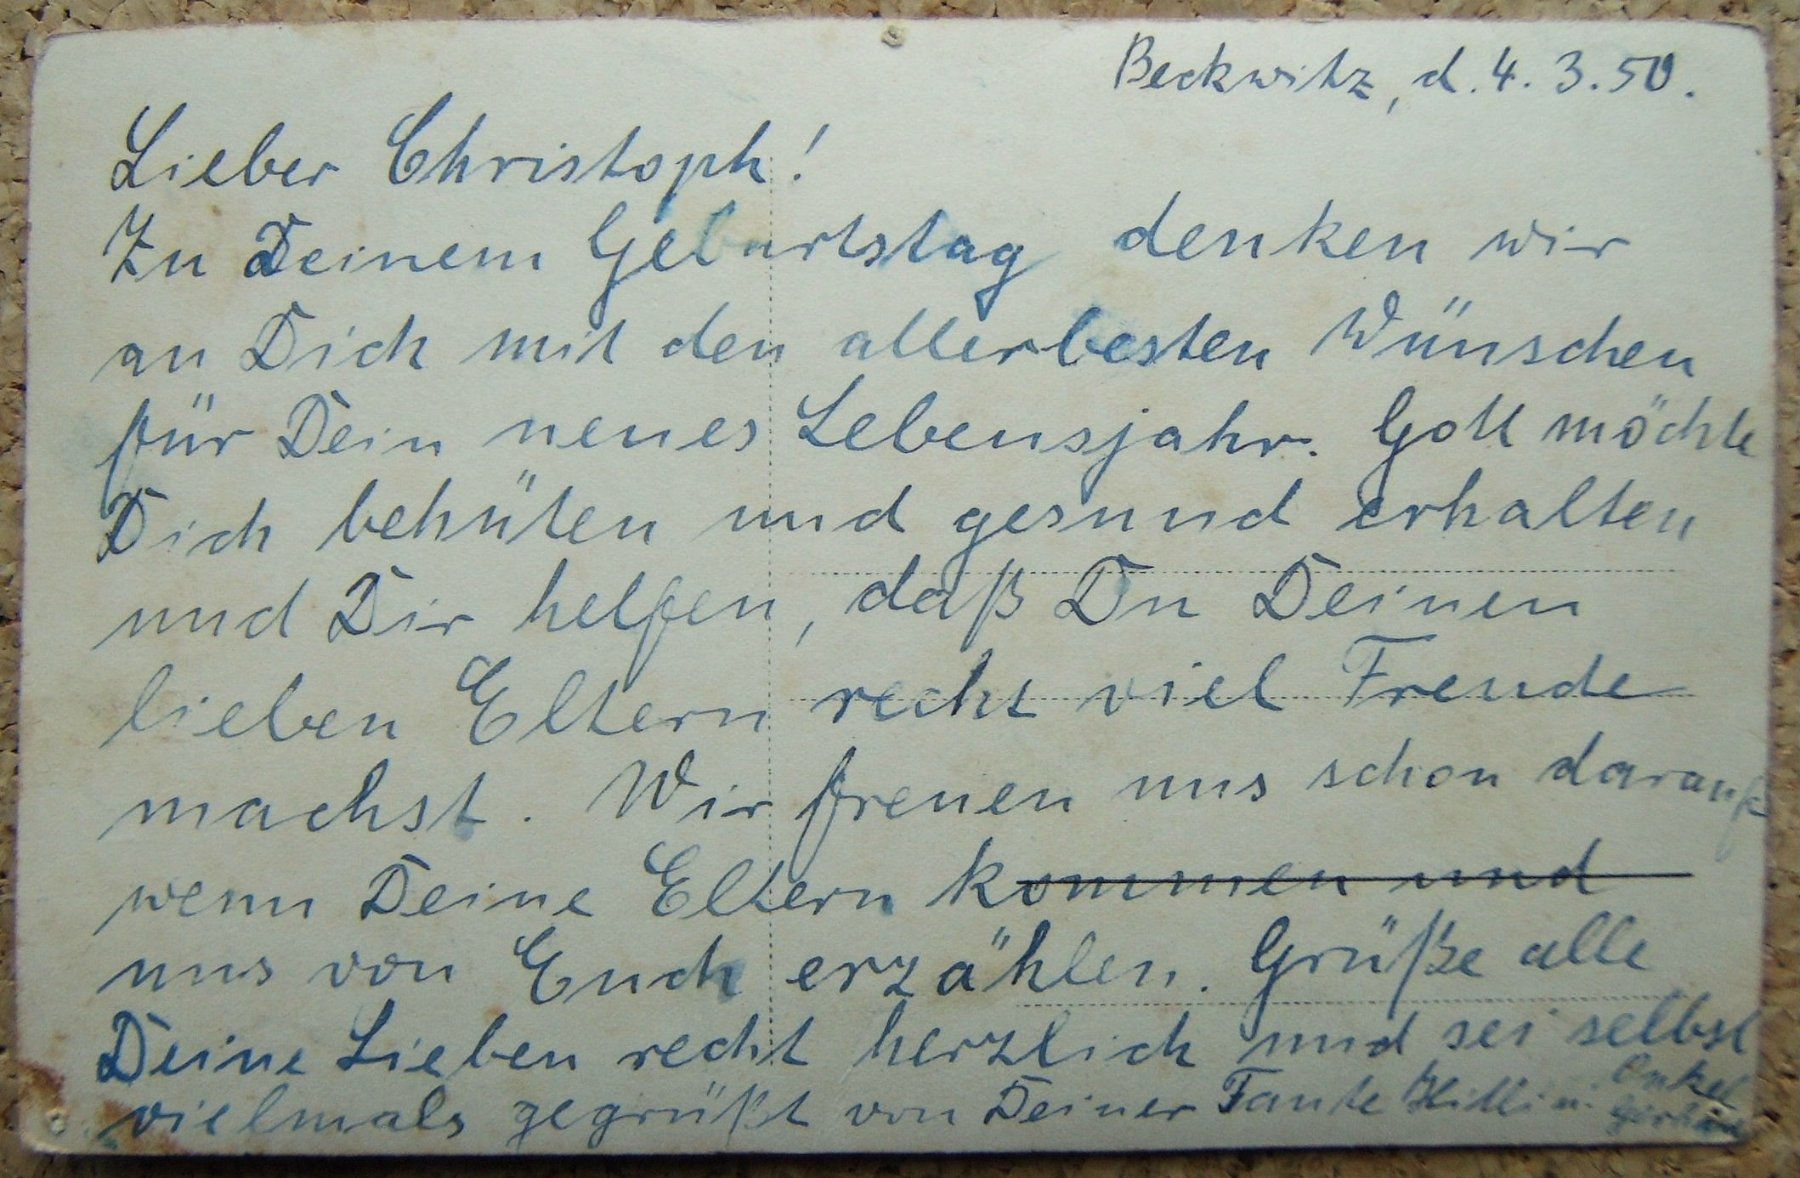 Beckwitz, d. 4. 3. 50.
Lieber Christoph!
Zu Deinem Geburtstag denken wir
an Dich mit den allerbesten Wünschen
für Dein neues Lebensjahr. Gott möchte
Dich behüten und gesund erhalten
und Dir helfen, daß Du Deinen
lieben Eltern recht viel Freude
machst. Wir freuen uns schon darauf
wenn Deine Eltern kommen und
uns von Euch erzählen. Grüße alle
Deine Lieben recht herzlich und sei selbst
vielmals gegrüßt von Deiner Tante u. Onkel